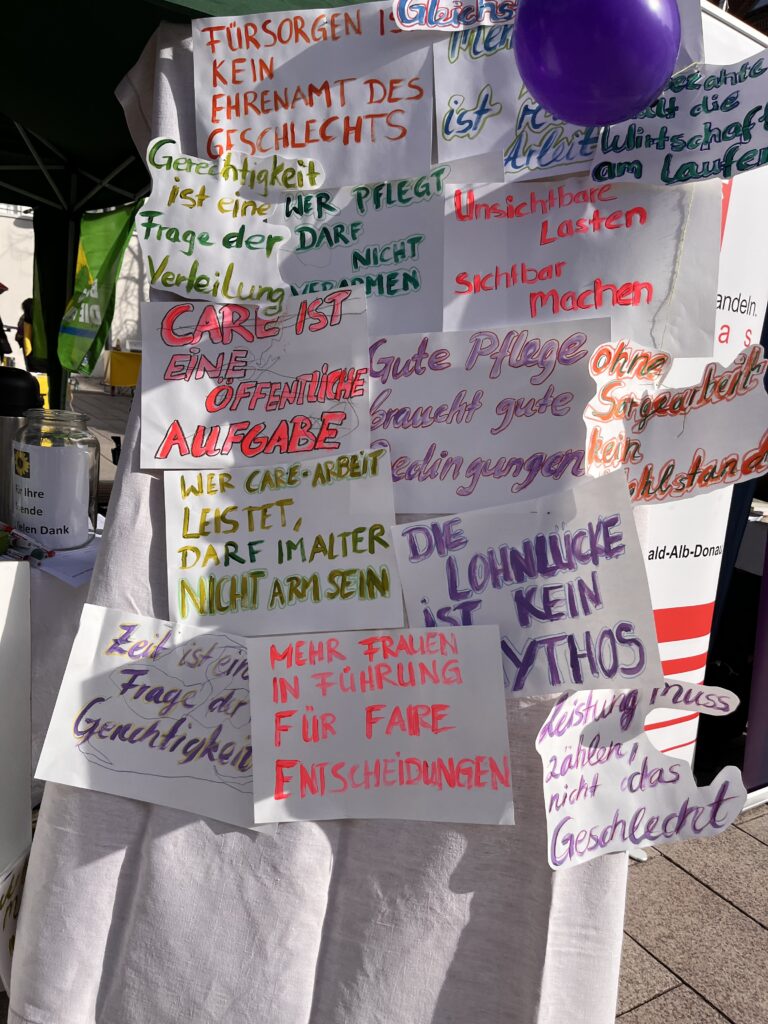 Gleichs
FÜRSORGEN IS
KEIN
EHRENAMT DES
GESCHLECHTS
ist
Arbeit
die
Wirtschaft
am Laufen
Gerechtigkeit
ist eine
Frage der
Verleilung
WER PFLEGT
DARF
NICHT
VERARMEN
Unsichtbare
Lasten
Sichtbar
Machen
CARE IST
EINE
ÖFFENTLICHE
AUFGABE
Gute Pflege
braucht gute
Bedingungen
ohne
Sorgearbeit
kein
ohlstand
WER CARE-ARBEIT
LEISTET,
DARF IM ALTER
NICHT ARM SEIN
DIE
LOHNLÜCKE
IST KEIN
MYTHOS
Zeit ist ein
Frage der
Gerechtigkeit
MEHR FRAUEN
IN FÜHRUNG
FÜR FAIRE
ENTSCHEIDUNGEN
Leistung muss
zählen,
nicht das
Geschlecht
andeln.
a s
ald-Alb-Donau
für Ihre
ende
ielen Dank